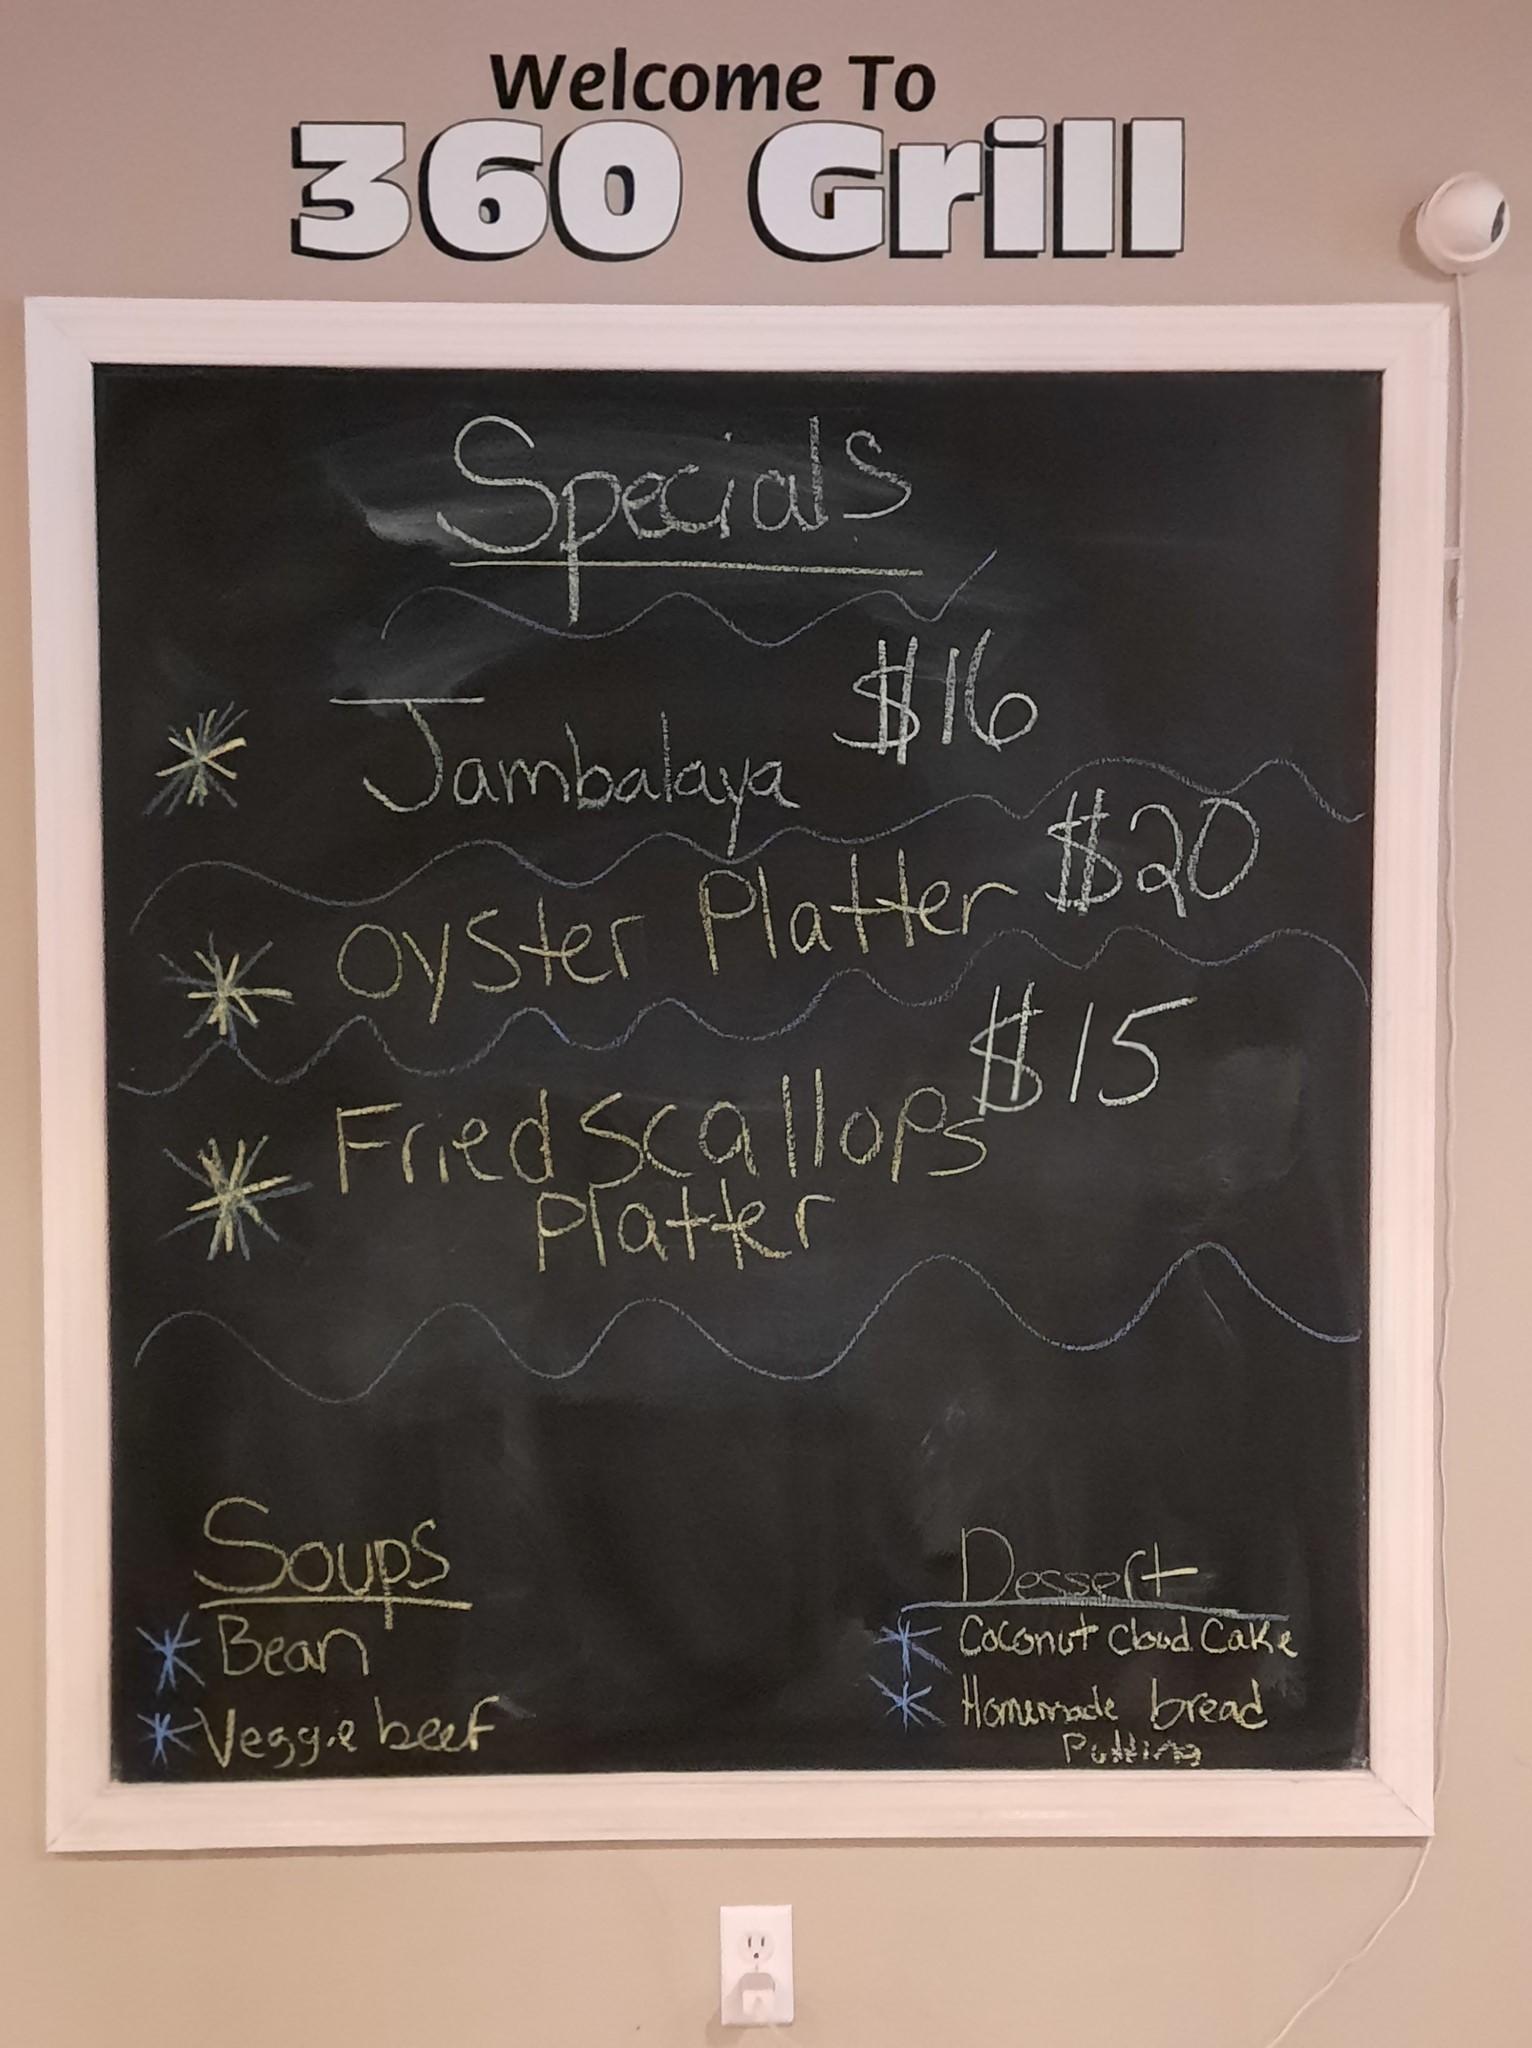 Welcome To
360 Grill
Specials
Jambalaya $16
Oyster Platter $20
Fried Scallops $15
Platter
Soups
Bean
Veggie beef
Dessert
Coconut Cloud Cake
Homemade bread
Pudding